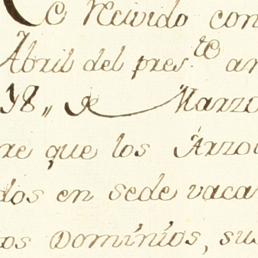 He Recivido con
Abril del pres.te a
18,, de Marzo
re que los Arzo
dos en sede vaca
os Dominios, su